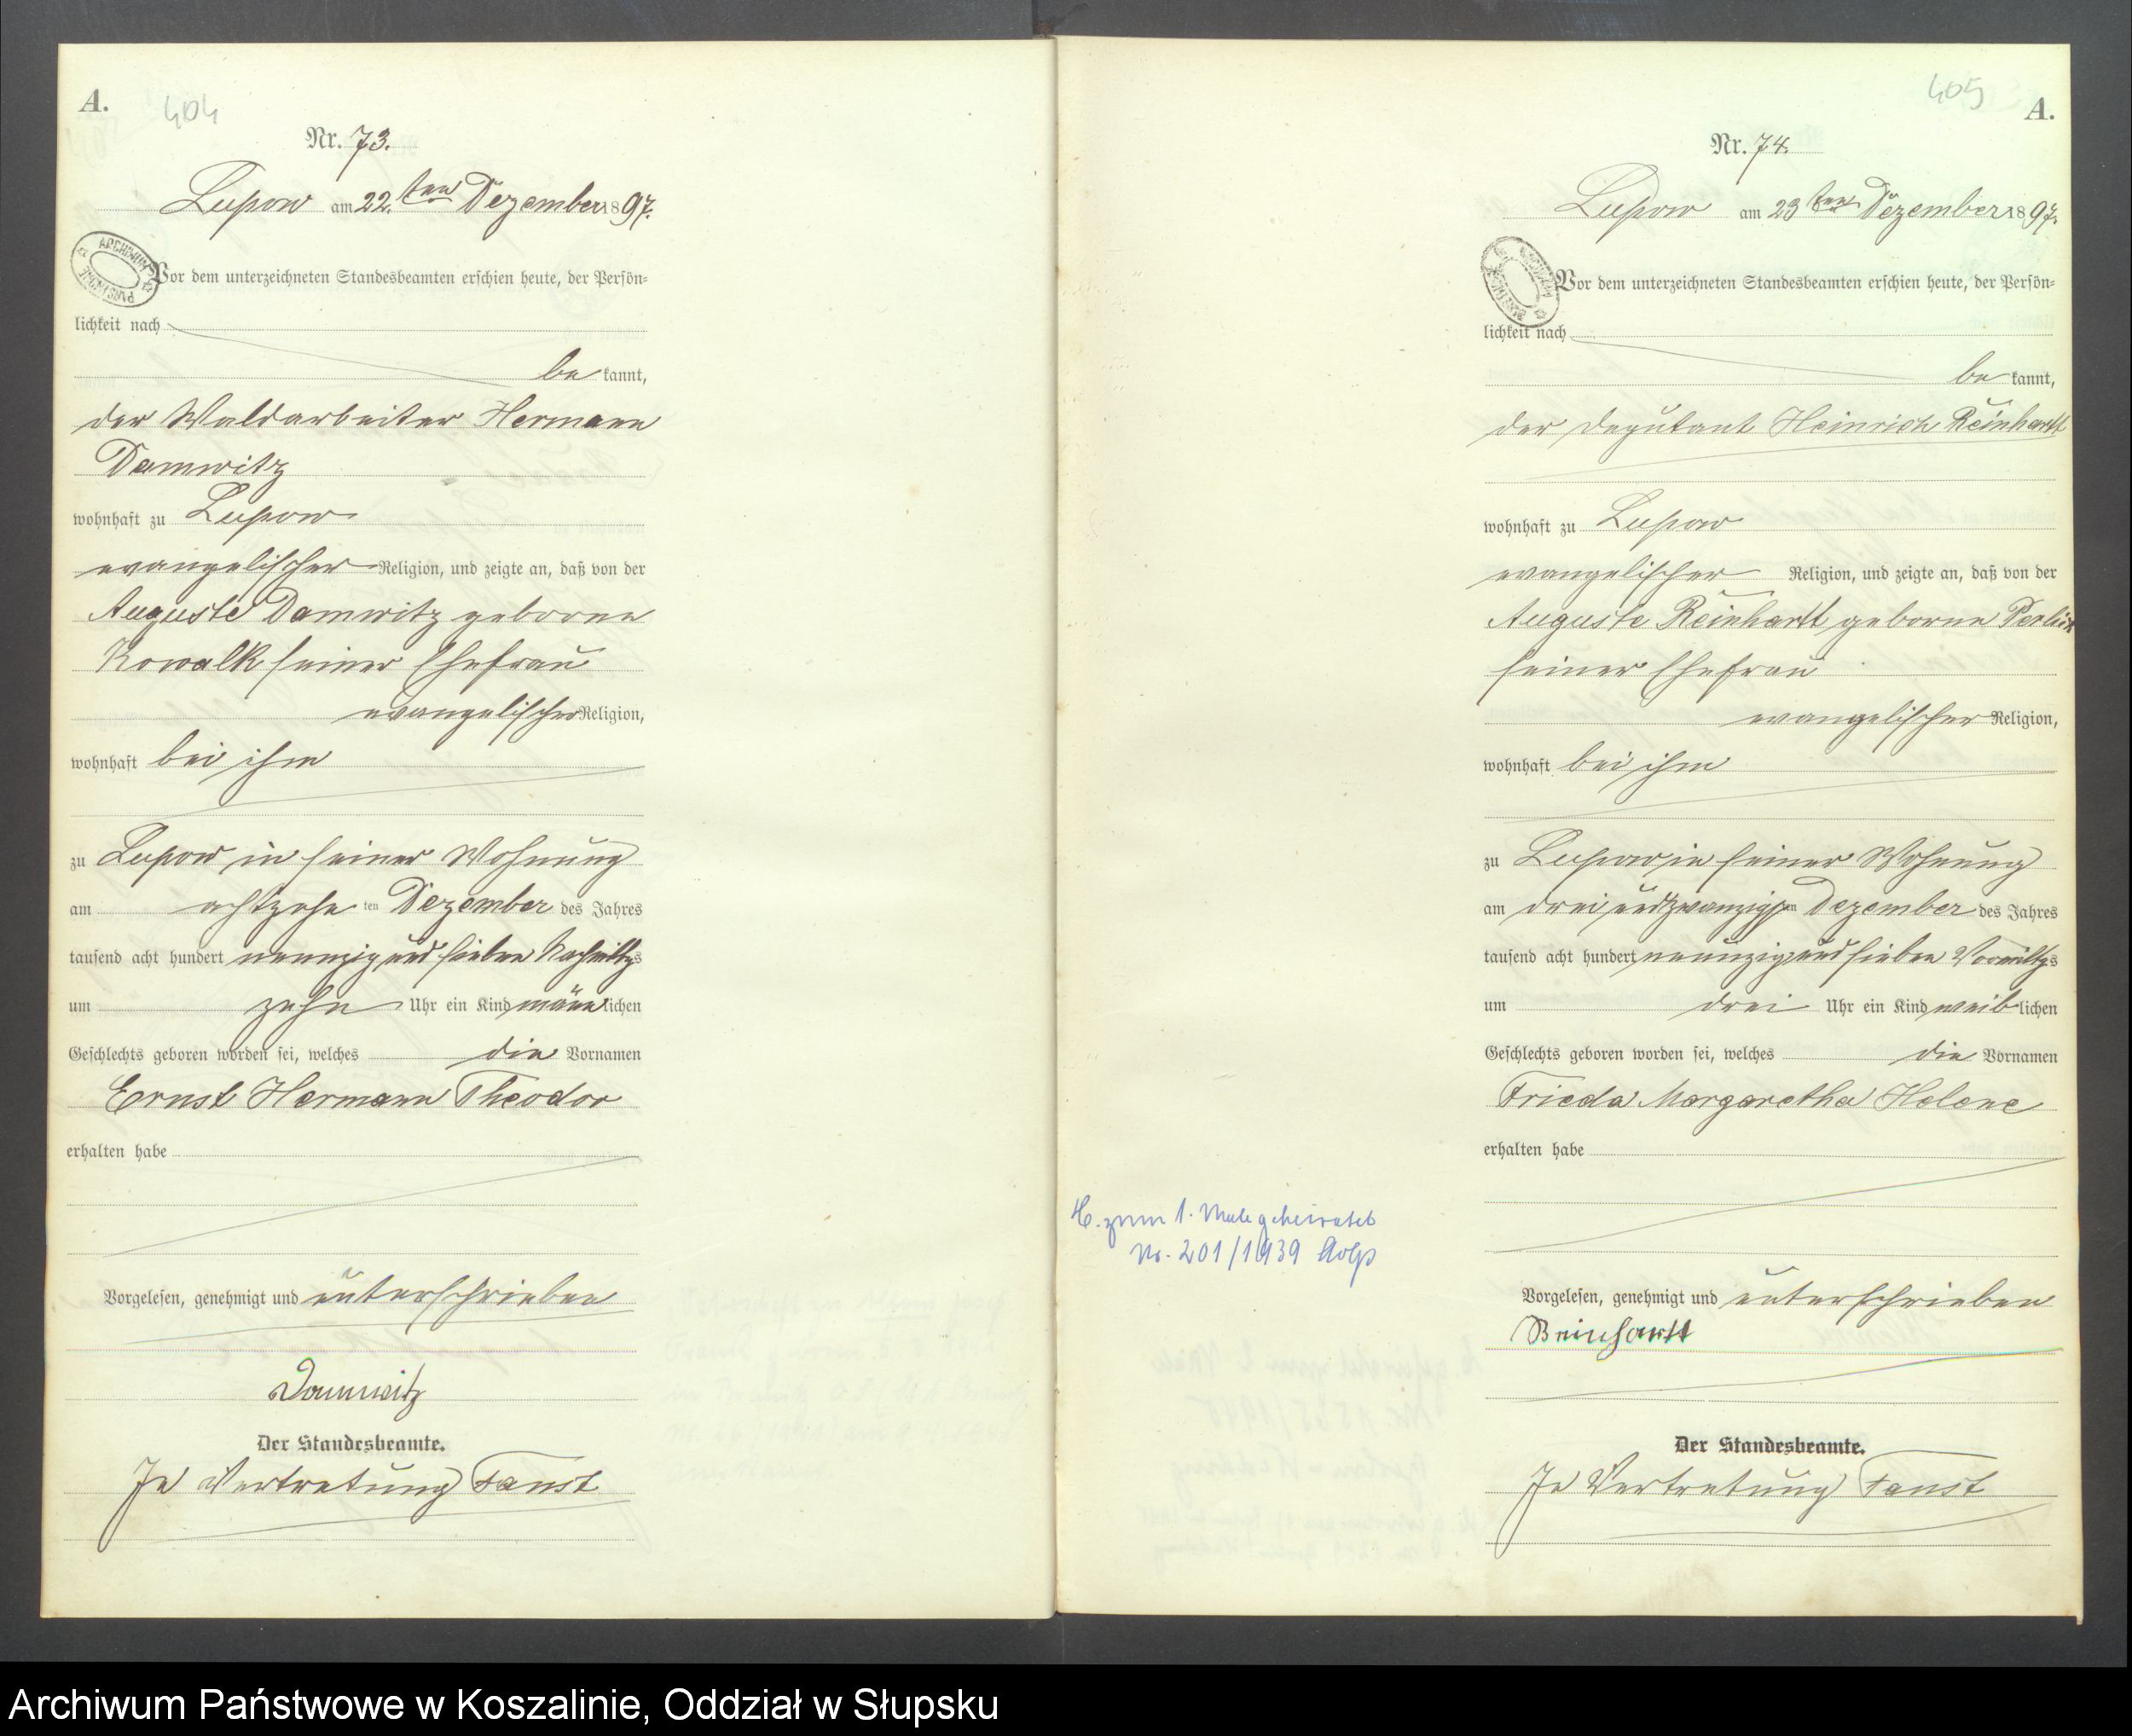 A.
404
Nr. 73.
Lupow am 22.ten Dezember 1897.
Vor dem unterzeichneten Standesbeamten erschien heute, der Persön-
lichkeit nach
be kannt,
der Waldarbeiter Hermann
Damwitz
wohnhaft zu Lupow
evangelischer Religion, und zeigte an, daß von der
Auguste Damwitz geborne
Kowalk seiner Ehefrau
evangelischer Religion,
wohnhaft bei ihm
zu Lupow in seiner Wohnung
am achtzehn ten Dezember des Jahres
tausend acht hundert neunzig und sieben Nachmittgs
um zehn Uhr ein Kind männlichen
Geschlechts geboren worden sei, welches die Vornamen
Ernst Hermann Theodor
erhalten habe
Vorgelesen, genehmigt und unterschrieben
Damwitz
Der Standesbeamte.
In Vertretung Faust
405
A.
Nr. 74.
Lupow am 23ten Dezember 1897.
ARCHIWUM
Vor dem unterzeichneten Standesbeamten erschien heute, der Persön-
lichkeit nach
be kannt,
der Deputant Heinrich Reinhartt
wohnhaft zu Lupow
evangelischer Religion, und zeigte an, daß von der
Auguste Reinhartt geborne Perlick
seiner Ehefrau
evangelischer Religion,
wohnhaft bei ihm
zu Lupow in seiner Wohnung
am dreiundzwanzigsten Dezember des Jahres
tausend acht hundert neunzig und sieben Vormittgs
um drei Uhr ein Kind weiblichen
Geschlechts geboren worden sei, welches die Vornamen
Frieda Margaretha Helene
erhalten habe
H. zum 1. Male geheiratet
Nr. 201/1939
Vorgelesen, genehmigt und unterschrieben
Reinhartt
Der Standesbeamte.
In Vertretung Faust
Archiwum Państwowe w Koszalinie, Oddział w Słupsku